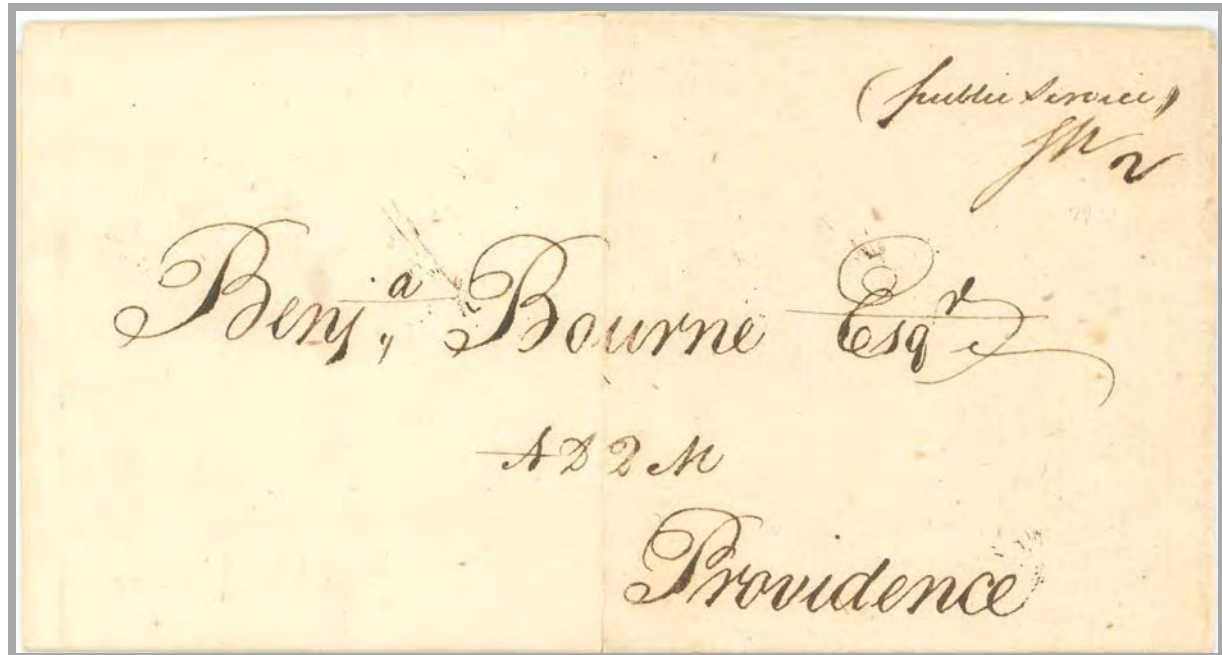 (public Service)
Benjª Bourne Esqr
A D Q M
Providence